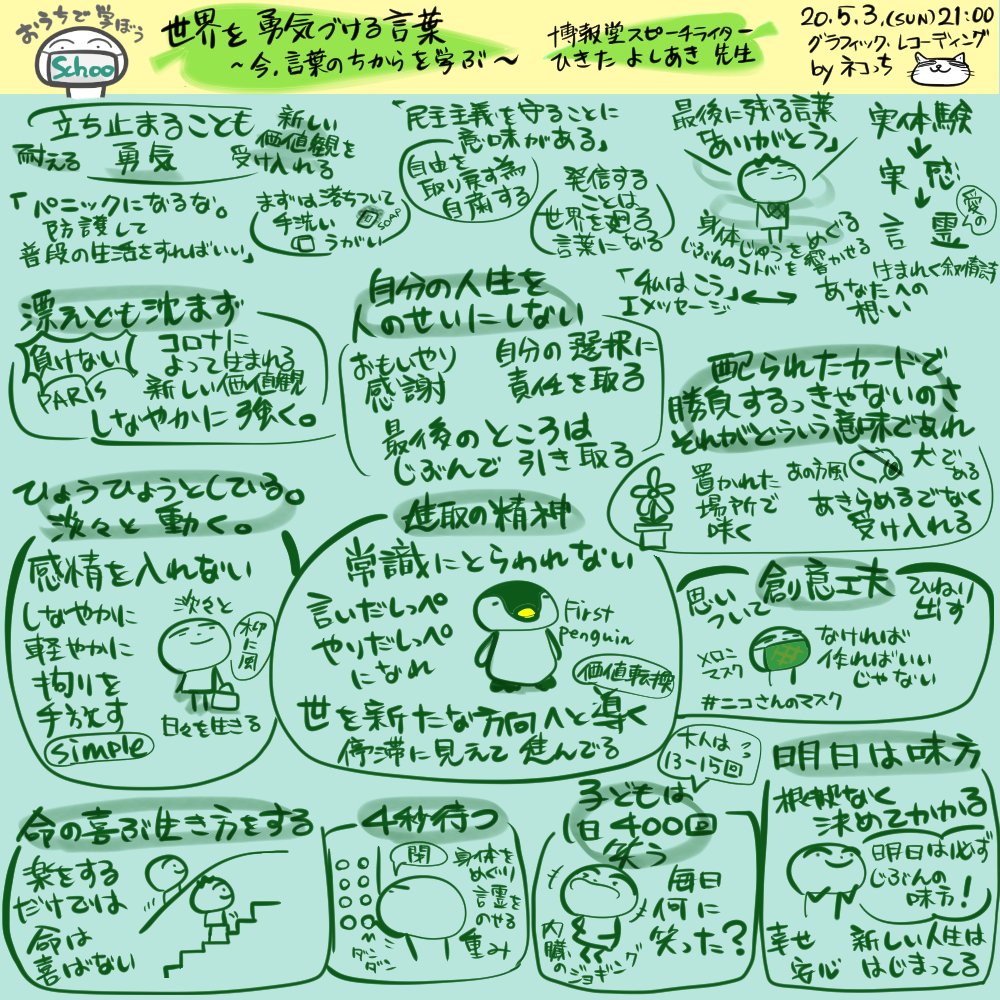 おうちで学ぼう
Schoo
世界を勇気づける言葉
～今、言葉のちからを学ぶ～
博報堂スピーチライター
ひきた よしあき 先生
20.5.3.(SUN)21:00
グラフィック.レコーディング
by ネコっち
立ち止まることも
勇気
耐える
新しい
価値観を
受け入れる
「パニックになるな。
防護して
普段の生活をすればいい」
まずは落ちついて
手洗い
SOAP
うがい
「民主主義を守ることに
意味がある」
自由を
取り戻す為
自粛する
発信する
ことは
世界を廻る
言葉になる
最後に残る言葉
「ありがとう」
身体じゅうをめぐる
じぶんのコトバを響かせる
実体験
実感
言霊
愛の
生まれく叙情詩
「私はこう」
Iメッセージ
あなたへの
想い
漂えども沈まず
負けない
PARIS
コロナに
よって生まれる
新しい価値観
しなやかに強く。
自分の人生を
人のせいにしない
おもいやり
感謝
自分の選択に
責任を取る
最後のところは
じぶんで引き取る
配られたカードで
勝負するっきゃないのさ
それがどういう意味であれ
置かれた
場所で
咲く
あの方風
犬で
ある
あきらめるでなく
受け入れる
ひょうひょうとしている。
淡々と動く。
感情を入れない
しなやかに
軽やかに
拘りを
手放す
simple
淡々と
柳に風
日々を生きる
進取の精神
常識にとらわれない
言いだしっぺ
やりだしっぺ
になれ
First
penguin
価値転換
世を新たな方向へと導く
停滞に見えて進んでる
創意工夫
思い
ついて
ひねり
出す
メロン
マスク
なければ
作ればいい
じゃない
#ニコさんのマスク
命の喜ぶ生き方をする
楽をする
だけでは
命は
喜ばない
4秒待つ
閉
ダン
ダン
身体を
めぐり
言霊を
のせる
重み
大人は
13-15回
子どもは
1日400回
笑う
内臓の
ジョギング
毎日
何に
笑った?
明日は味方
根拠なく
決めてかかる
明日は必ず
じぶんの
味方!
幸せ
安心
新しい人生は
はじまってる